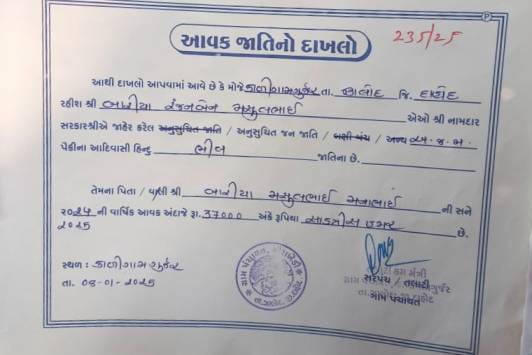 આવક જાતિનો દાખલો
235/25
આથી દાખલો આપવામાં આવે છે કે મોજે કાળીગામગુર્જર તા. ઝાલોદ જિ. દાહોદ
રહીશ શ્રી બારીયા રંજનબેન મસુલભાઈ એઓ શ્રી નામદાર
સરકારશ્રીએ જાહેર કરેલ અનુસુચિત જાતિ / અનુસુચિત જન જાતિ / બક્ષી પંચ / અન્ય અ.જ.જ.
પૈકીના આદિવાસી હિન્દુ ભીલ જાતિના છે.
તેમના પિતા / વાલી શ્રી બારીયા મસુલભાઈ મનાભાઈ ની સને
૨૦૨૪ ની વાર્ષિક આવક અંદાજે રૂા. 37000 અંકે રૂપિયા સાડત્રીસ હજાર છે.
૨૦૨૫
સ્થળ : કાળીગામગુર્જર
તા. 08-01-૨૦૨૫
ગ્રામ પંચાયત
તા. ઝાલોદ
સરપંચ / તલાટી
ગ્રામ પંચાયત